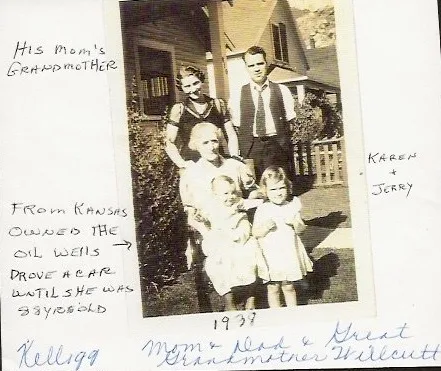 HIS MOM'S
GRANDMOTHER
KAREN
+
JERRY
FROM KANSAS
OWNED THE
OIL WELLS
DROVE A CAR
UNTIL SHE WAS
YRS OLD
1938
Kellogg
Mom & Dad & Great
Grandmother Willcutt